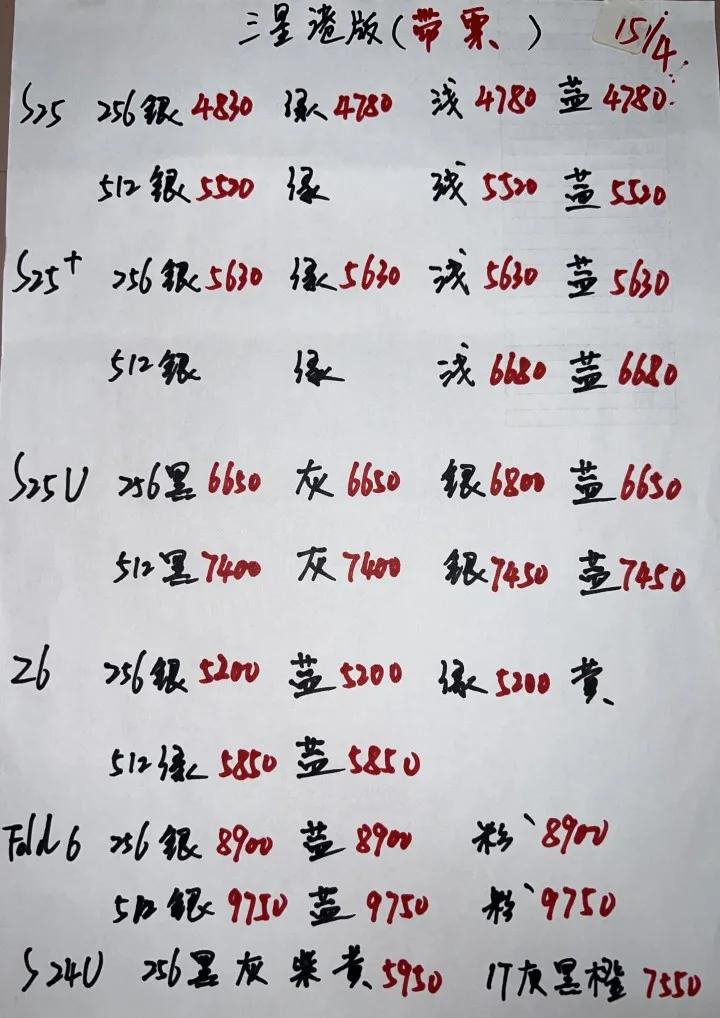 三星港版(带票)
15/4
S25 256銀4830 绿4780 浅4780 蓝4780
512銀5520 绿 浅5520 蓝5520
S25+ 256銀5630 绿5630 浅5630 蓝5630
512銀 绿 浅6680 蓝6680
S25U 256黑6650 灰6650 銀6800 蓝6650
512黑7400 灰7400 銀7450 蓝7450
Z6 256銀5200 蓝5200 绿5200 黄
512绿5850 蓝5850
Fold6 256銀8900 蓝8900 粉8900
512銀9750 蓝9750 粉9750
S24U 256黑灰紫黄5950 1T灰黑橙7550